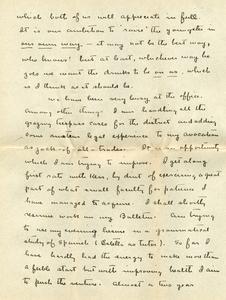 which both of us will appreciate in full.
It is our ambition to raise the youngster in
our own way, - it may not be the best way,
who knows! but at least, whichever way he
goes we want the thanks to be on us, which
is I think as it should be.
We have been very busy at the office.
Among other things I am handling all the
grazing trespass cases for the district and adding
some more to get experience to my avocation
as jack-of-all-trades. It is an opportunity
which I am trying to improve. I get along
first rate with Kerr, by dint of exercising a great
part of what small faculty for patience I
have managed to acquire. I shall shortly
resume work on my Bulletin. Am trying
to use my evening hours in a grammatical
study of Spanish ( as tutor). So far I
have hardly had the energy to make more than
a feeble start but with improving health I am
to push the venture. Almost a two year